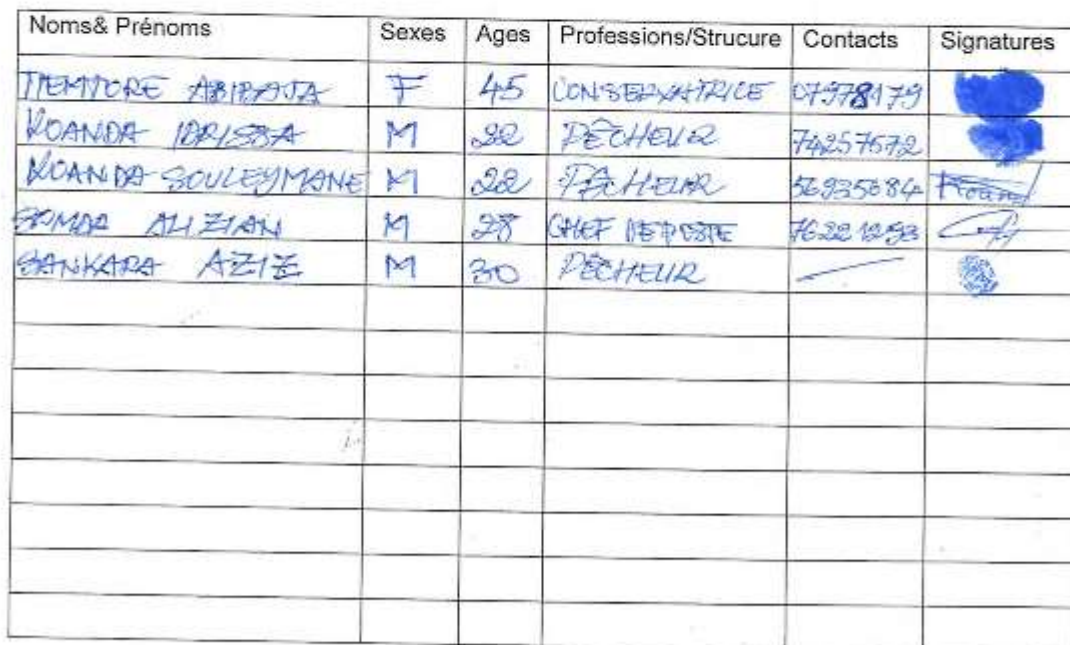 Noms& Prénoms Sexes Ages Professions/Strucure Contacts Signatures
TIEMTORE ABIBATA F 45 CONSERVATRICE 07978179
KOANDA IDRISSA M 22 PÊCHEUR 74257672
KOANDA SOULEYMANE M 22 PÊCHEUR 56935684 Koand
SOMDA ALIZIAN M 28 CHEF DE POSTE 76221293
SANKARA AZIZ M 30 PÊCHEUR